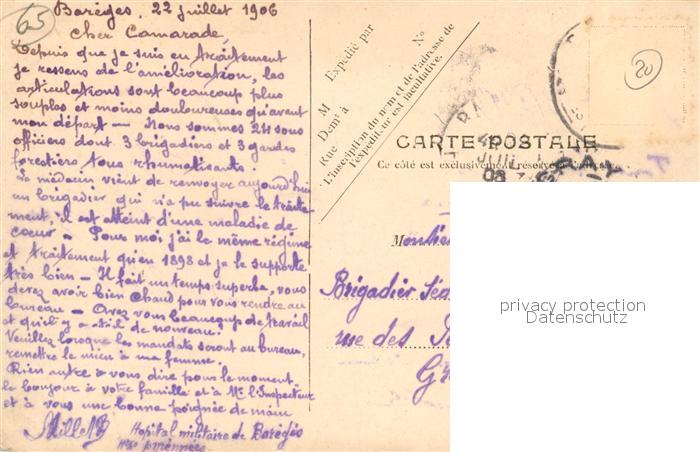 65
Barèges, 22 Juillet 1906
Cher Camarade,
Depuis que je suis en traitement
je ressens de l'amélioration, les
articulations sont beaucoup plus
souples et moins douloureuses qu'avant
mon départ — Nous sommes 24 sous
officiers dont 3 brigadiers et 3 gardes
forestiers tous rhumatisants.
Le médecin vient de renvoyer aujourd'hui
un brigadier qui n'a pu suivre le traite-
ment, il est atteint d'une maladie de
coeur — Pour moi j'ai le même régime
et traitement qu'en 1898 et je le supporte
très bien — Il fait un temps superbe, vous
devez avoir bien chaud pour vous rendre au
bureau — Avez vous beaucoup de travail
et qu'il y a-t-il de nouveau?
Veuillez lorsque les mandats seront au bureau,
remettre le mien à ma femme.
Rien autre à vous dire pour le moment,
le bonjour à votre famille et à Mr l'Inspecteur
et à vous une bonne poignée de main
Millet
Hopital militaire de Barèges
Htes pyrénnées
Expédié par
M
Demt à
Rue
No
L'inscription du nom et de l'adresse de
l'expéditeur est facultative.
20
CARTE POSTALE
Ce côté est exclusivement réservé à l'adresse
JUIL
06
M
Brigadier
rue des
privacy protection
Datenschutz